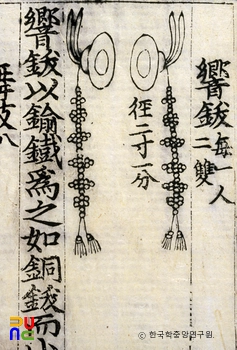 響鈸每一人
二雙
徑二寸一分
響鈸以鍮鐵爲之如銅鈸而小
舞技八
ⓒ 한국학중앙연구원.